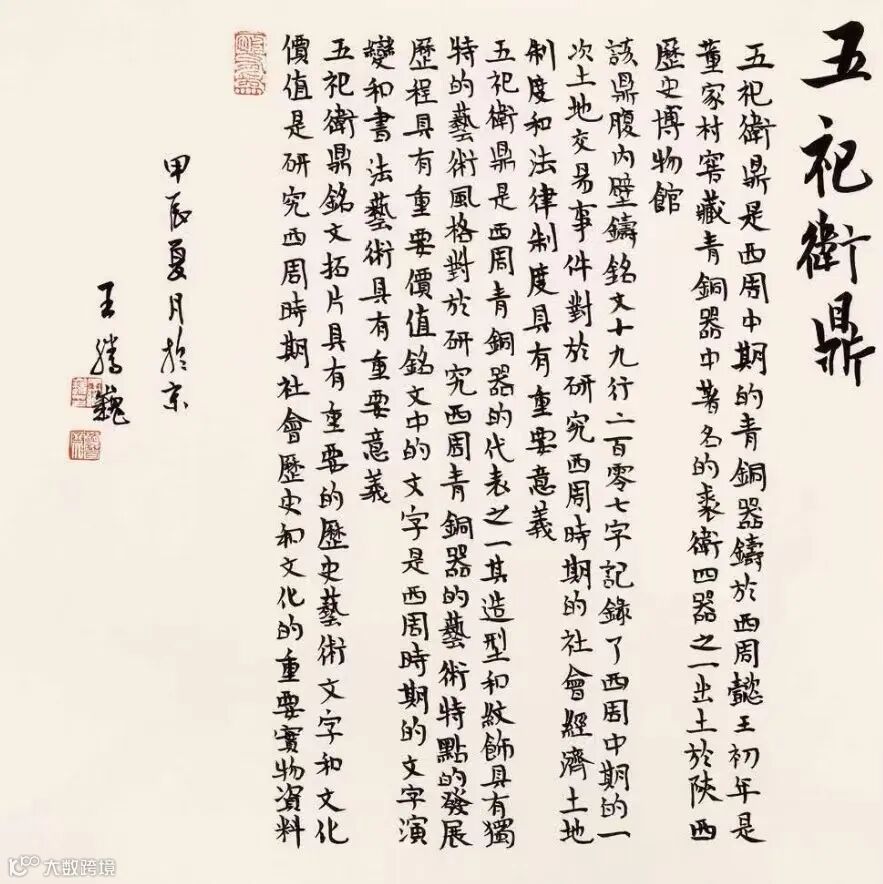 五祀衛鼎
五祀衛鼎是西周中期的青銅器鑄於西周懿王初年是
董家村窖藏青銅器中著名的裘衛四器之一出土於陝西
歷史博物館
該鼎腹内壁鑄銘文十九行二百零七字記錄了西周中期的一
次土地交易事件對於研究西周時期的社會經濟土地
制度和法律制度具有重要意義
五祀衛鼎是西周青銅器的代表之一其造型和紋飾具有獨
特的藝術風格對於研究西周青銅器的藝術特點的發展
歷程具有重要價值銘文中的文字是西周時期的文字演
變和書法藝術具有重要意義
五祀衛鼎銘文拓片具有重要的歷史藝術文字和文化
價值是研究西周時期社會歷史和文化的重要實物資料
甲辰夏月於京
王騰巍
大数跨境